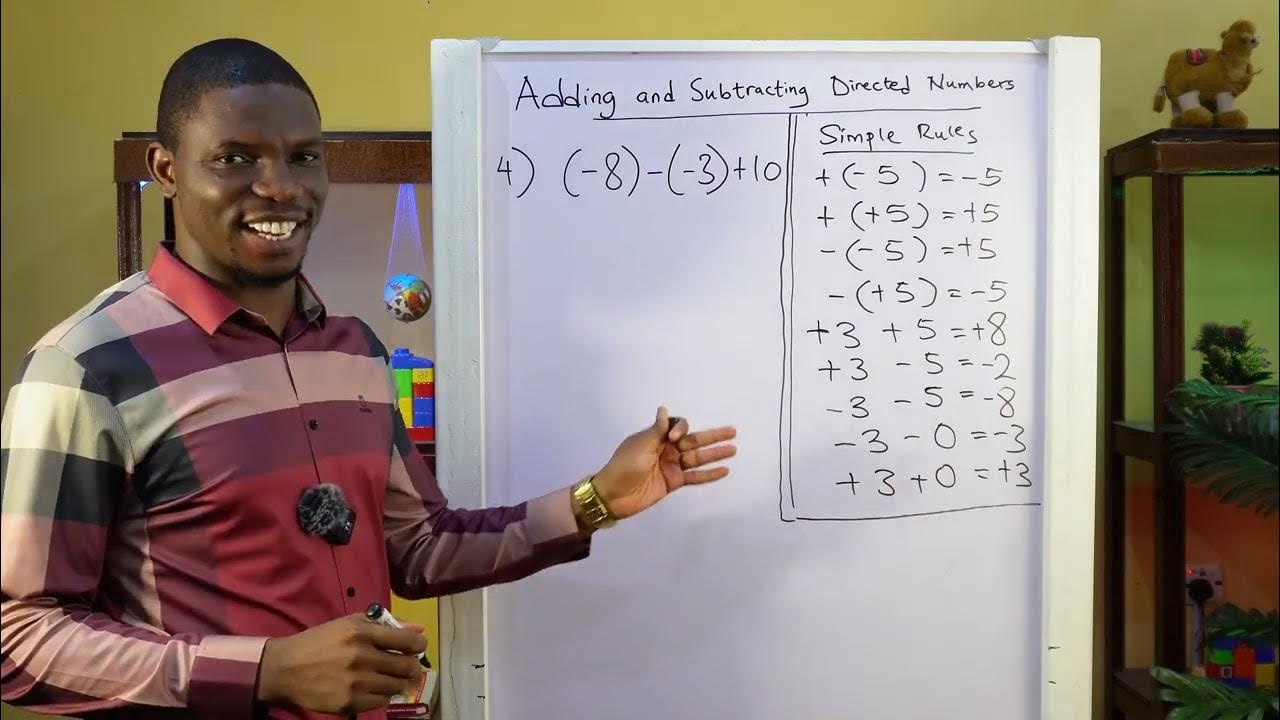 Adding and Subtracting Directed Numbers
4) (-8)-(-3)+10
Simple Rules
+(-5) = -5
+(+5) = +5
-(-5) = +5
-(+5) = -5
+3 +5 = +8
+3 -5 = -2
-3 -5 = -8
-3 -0 = -3
+3 +0 = +3